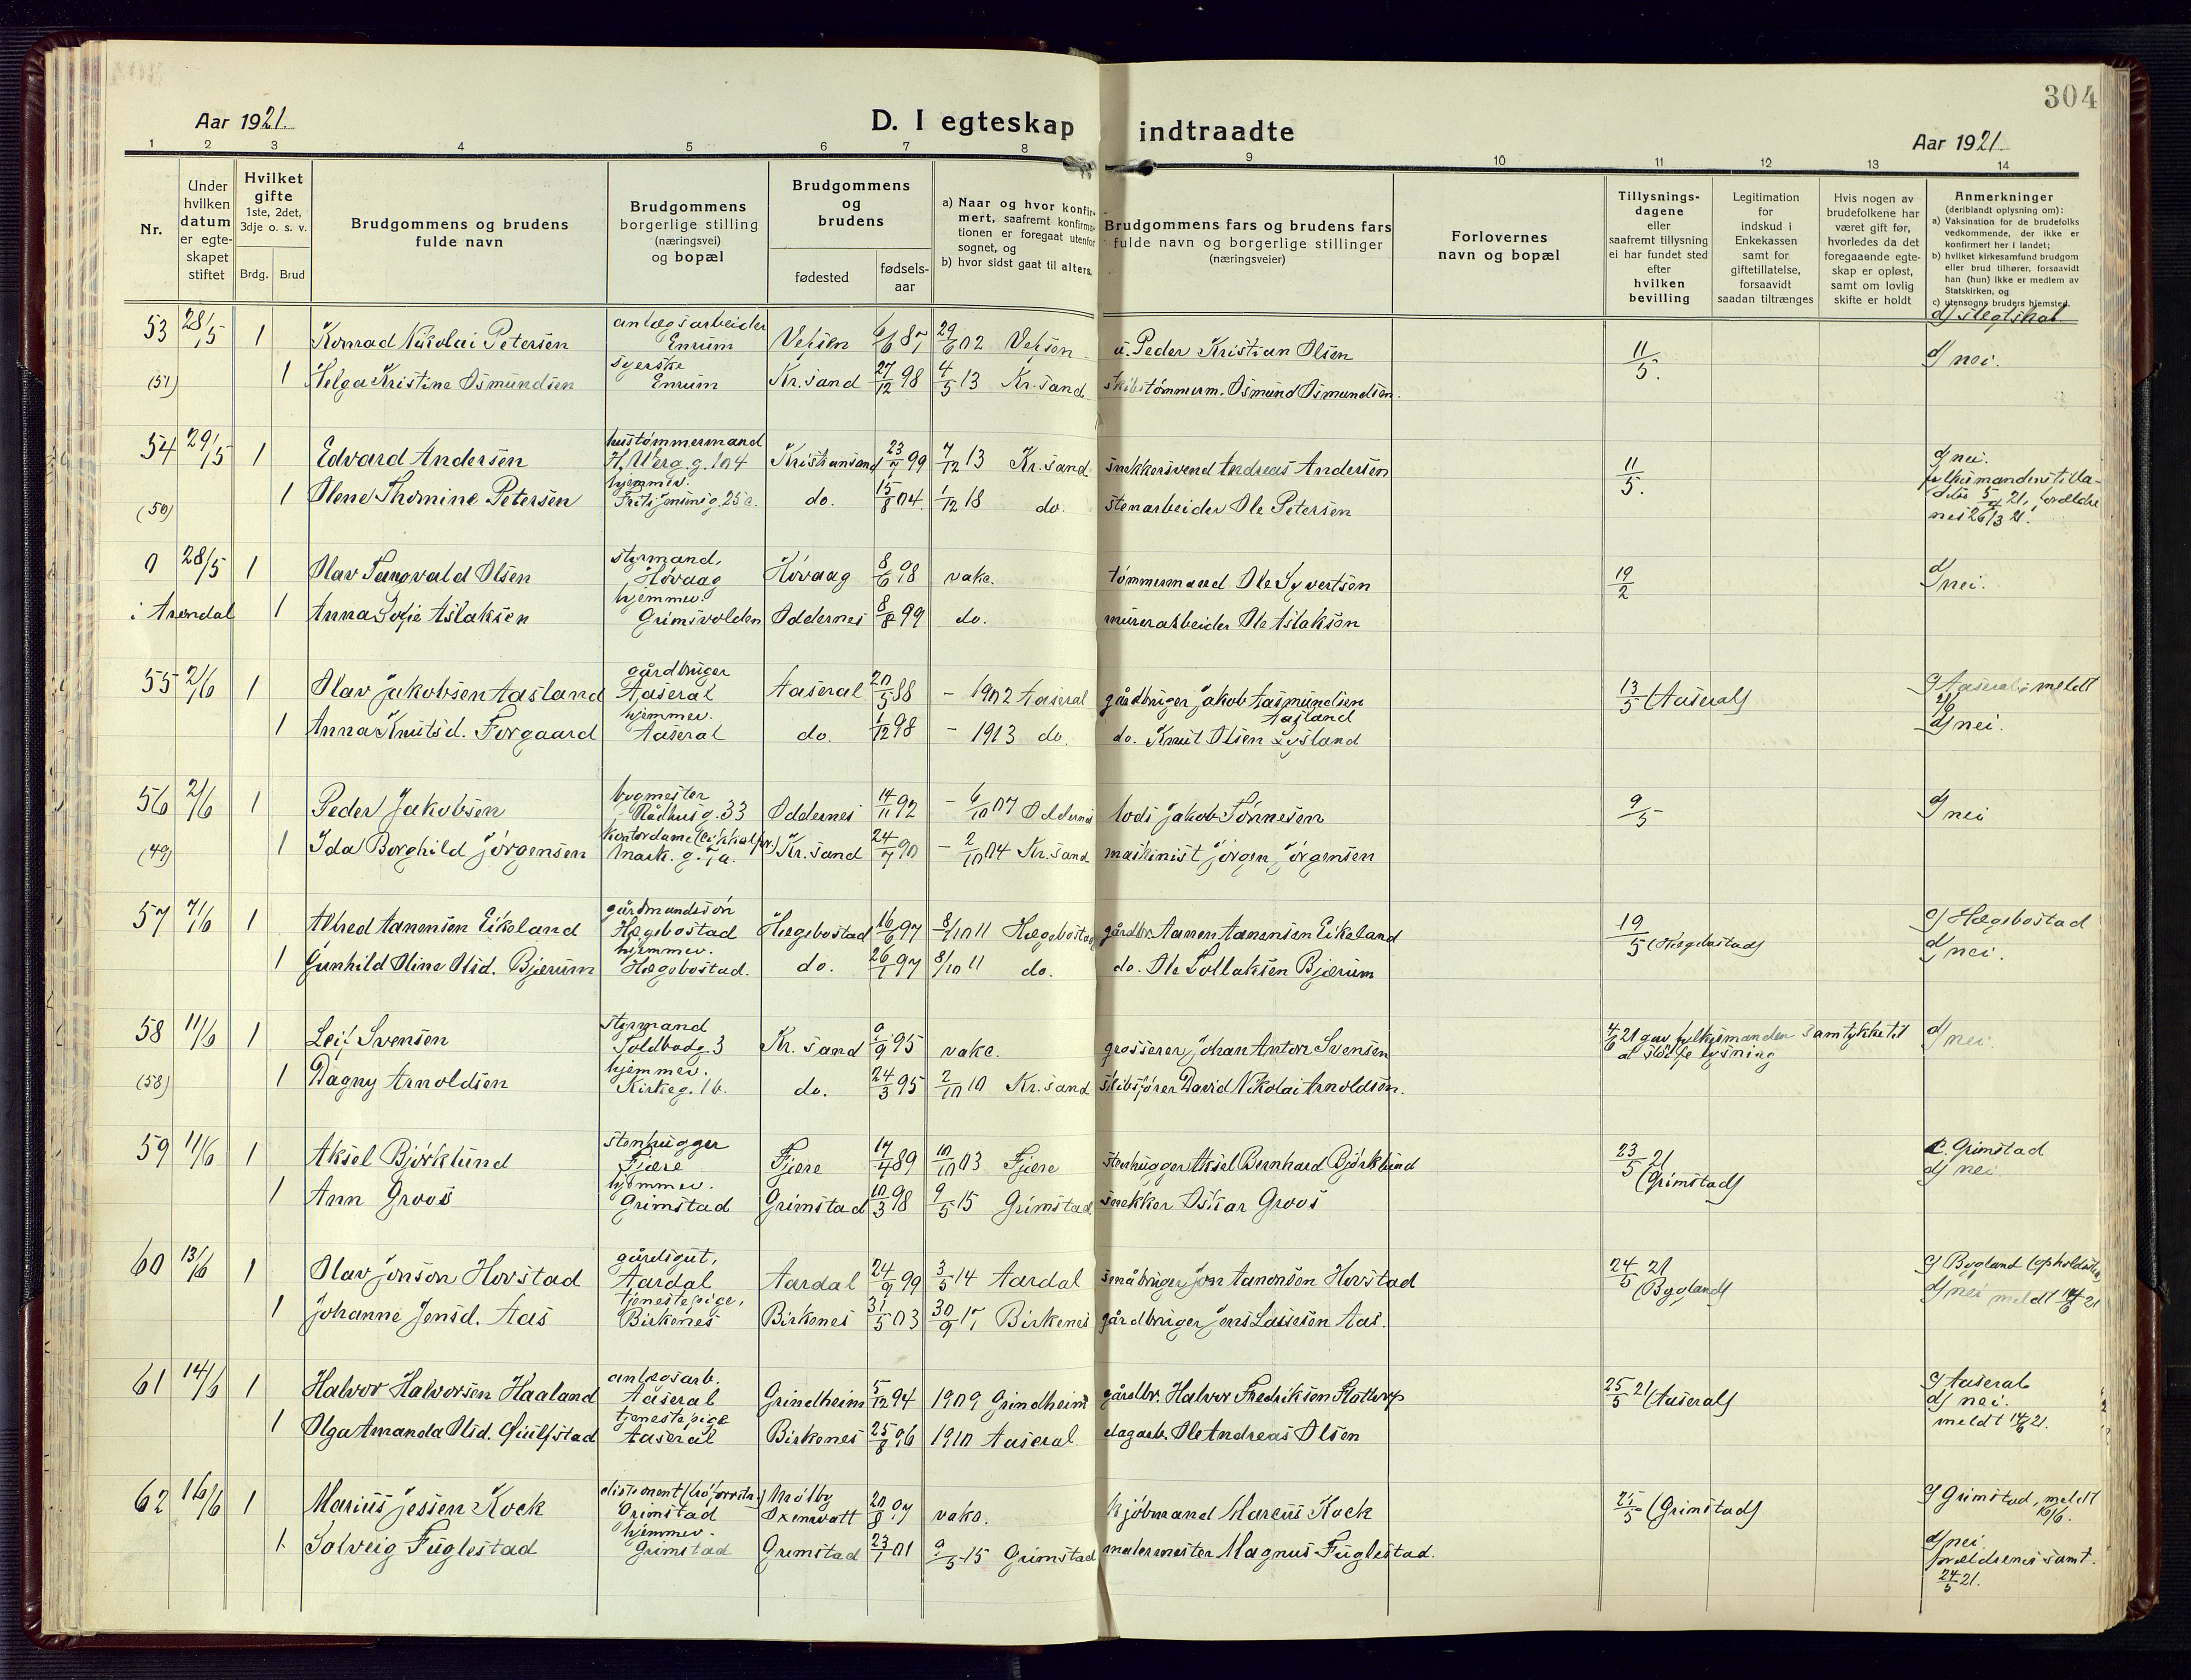 304
Aar 1921. D. I egteskap indtraadte Aar 1921.
1 2 3 4 5 6 7 8 9 10 11 12 13 14
Nr.
Under hvilken datum er egte-skapet stiftet
Hvilket gifte 1ste, 2det, 3dje o. s. v.
Brdg. Brud
Brudgommens og brudens fulde navn
Brudgommens borgerlige stilling (næringsvei) og bopæl
Brudgommens og brudens
fødested fødsels-aar
a) Naar og hvor konfir-mert, saafremt konfirma-tionen er foregaat utenfor sognet, og b) hvor sidst gaat til alters.
Brudgommens fars og brudens fars fulde navn og borgerlige stillinger (næringsveier)
Forlovernes navn og bopæl
Tillysnings-dagene eller saafremt tillysning ei har fundet sted efter hvilken bevilling
Legitimation for indskud i Enkekassen samt for giftetillatelse, forsaavidt saadan tiltrænges
Hvis nogen av brudefolkene har været gift før, hvorledes da det foregaaende egte-skap er opløst, samt om lovlig skifte er holdt
Anmerkninger (deriblandt oplysning om): a) Vaksination for de brudefolks vedkommende, der ikke er konfirmert her i landet; b) hvilket kirkesamfund brudgom eller brud tilhører, forsaavidt han (hun) ikke er medlem av Statskirken, og c) utensogns bruders hjemsted.
d) slegtskab
53 28/5 1 Konrad Nikolai Petersen anlægsarbeider Enrum Vefsen 6/6 87 29/6 02 Vefsen u. Peder Kristian Olsen 11/5. d) nei.
(51) 1 Helga Kristine Osmundsen syerske Enrum Kr.sand 27/12 98 4/5 13 Kr.sand skibstømmerm. Osmund Osmundsen.
54 29/5 1 Edvard Andersen hustømmermand H. Werg. g. 104 Kristiansand 23/7 99 7/12 13 Kr.sand snekkersvend Andreas Andersen 11/5. d) nei.
(50) 1 Olene Thomine Petersen hjemmev. Frits Jensensg. 25 c. do. 15/8 04. 1/12 18 do. stenarbeider Ole Petersen
0 28/5 1 Olav Tangvald Olsen styrmand, Høvaag Høvaag 8/6 98 vakc. tømmermand Ole Syvertsen 19/2 d) nei.
i Arendal 1 Anna Sofie Aslaksen hjemmev. Grimsvolden Oddernes 8/8 99 do. murerarbeider Ole Aslaksen
55 2/6 1 Olav Jakobsen Aasland gårdbruger Aaseral Aaseral 20/5 88 - 1902 Aaseral gårdbruger Jakob Aasmundsen Aasland 13/5 (Aaseral) c) Aaseral, meldt 2/6
1 Anna Knutsd. Forgaard hjemmev. Aaseral do. 1/12 98 - 1913 do. do. Knut Olsen Lysland d) nei.
56 2/6 1 Peder Jakobsen bygmester Rådhusg. 33 Oddernes 14/11 92 - 6/10 07 Oddernes lods Jakob Tønnesen 9/5 d) nei
(49) 1 Ida Borghild Jörgensen kontordame Mark. g. 7 a. Kr.sand 24/7 90 - 2/10 04 Kr.sand maskinist Jörgen Jörgensen
57 7/6 1 Alfred Aanensen Eikeland gårdmandssøn Hægebostad Hægebostad 16/6 97 8/10 11 Hægebostad gårdbr. Aanen Aanensen Eikeland 19/5 (Hægebostad) c) Hægebostad
1 Gunhild Oline Olsd. Bjærum hjemmev. Hægebostad. do. 26/1 97 8/10 11 do. do. Ole Tollaksen Bjærum d) nei.
58 11/6 1 Leif Svensen styrmand Toldbodg. 3 Kr.sand 9/9 95 vakc. grosserer Johan Anton Svensen 4/6 21 gav fylkesmanden samtykke til at sløife lysning d) nei.
(58) 1 Dagny Arnoldsen hjemmev. Kirkeg. 16. do. 24/3 95 2/10 10 Kr.sand skibsfører David Nikolai Arnoldsen.
59 11/6 1 Aksel Björklund stenhugger Fjære Fjære 17/4 89 10/10 03 Fjære stenhugger Aksel Bernhard Björklund 23/5 21 (Grimstad) c. Grimstad
1 Ann Groos hjemmev. Grimstad Grimstad 10/3 98 9/5 15 Grimstad. snekker Oskar Groos d) nei
60 13/6 1 Olav Jonson Hovstad gårdsgut, Aardal Aardal 24/9 99 3/5 14 Aardal småbruger Jon Aanonsen Hovstad 24/5 21 (Bygland) c) Bygland
1 Johanne Jensd. Aas tjenestepige, Birkenes Birkenes 31/5 03 30/9 17 Birkenes gårdbruger Jens Lassesen Aas. d) nei meldt 14/6 21
61 14/6 1 Halvor Halvorsen Haaland anlægsarb. Aaseral Grindheim 5/12 94 1909 Grindheim gårdbr. Halvor Fredriksen Flottorp 25/5 21 (Aaseral) c) Aaseral
1 Olga Amanda Olsd. tjenestepige Aaseral Birkenes 25/8 96 1910 Aaseral dagarb. Ole Andreas Olsen d) nei. meldt 14/6 21.
62 16/6 1 Marius Jessen Kock disponent Grimstad Mølby Oxenvatt 20/8 97 vakc. kjøbmand Marcus Kock 25/5 (Grimstad) c) Grimstad, meldt 16/6.
1 Solveig Fuglestad hjemmev. Grimstad Grimstad 23/1 01 9/5 15 Grimstad malermester Magnus Fuglestad. d) nei. forældrenes samt. 24/5 21.